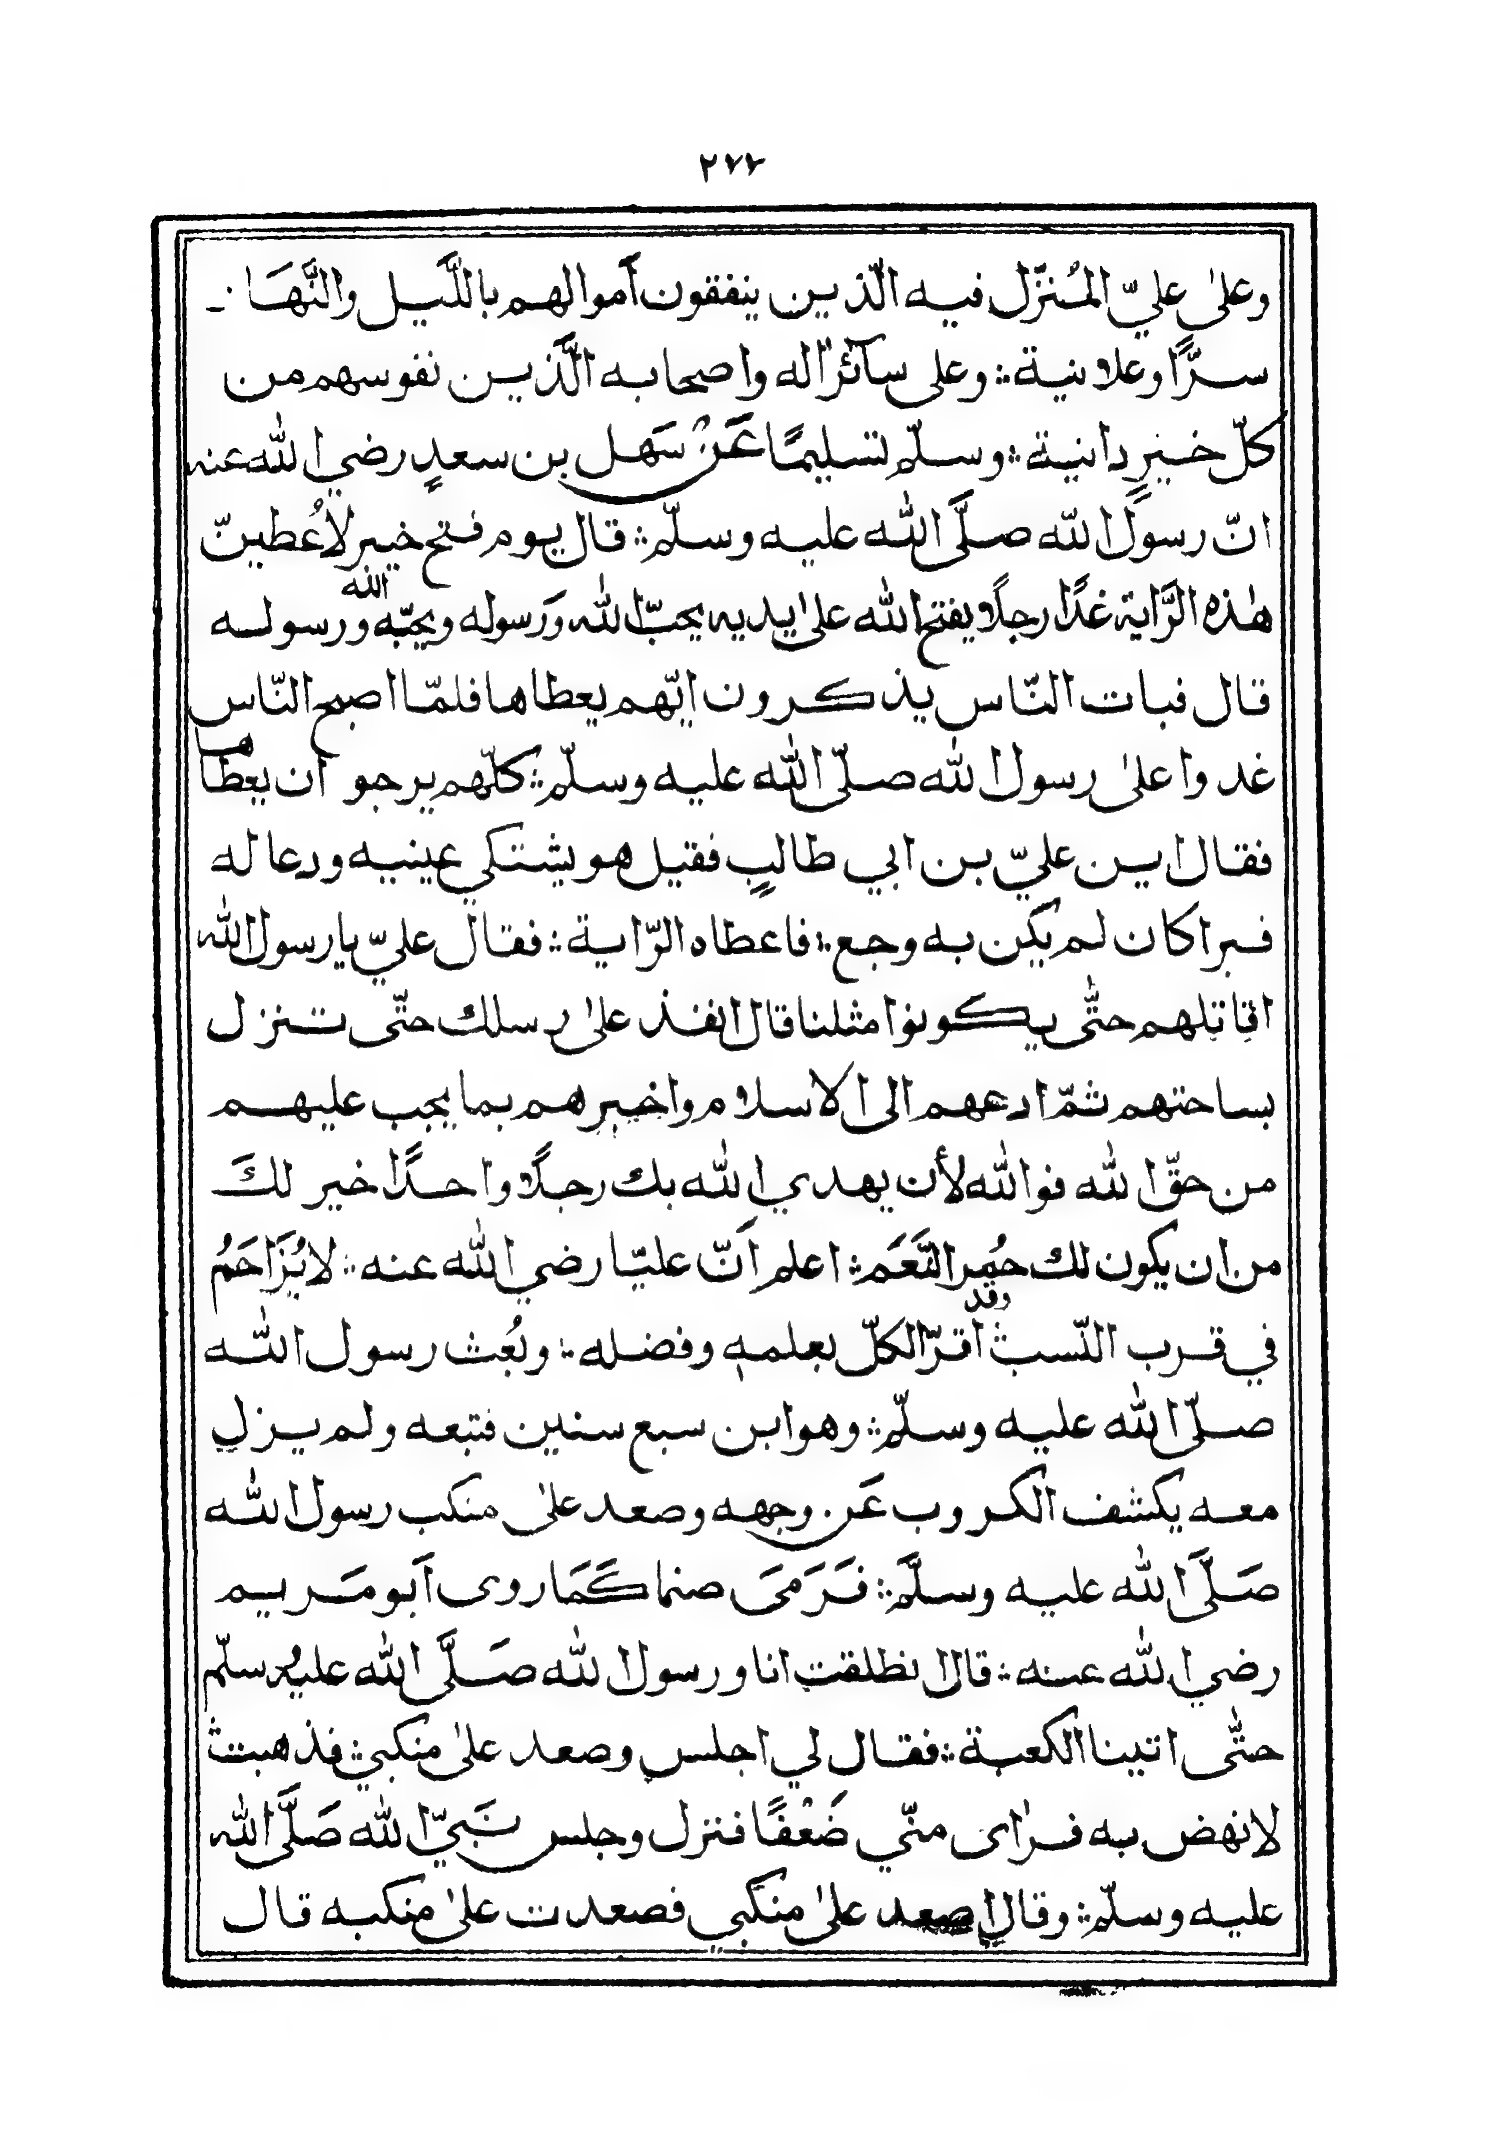 ٢٧٧
وعلىٰ عليّ المُنزّل فيه الّذين ينفقون أموالهم باللَّيل والنَّهَا
سرًّا وعلانية ؞ وعلى سآئر اٰله واصحابه الَّذين نفوسهم من
كلّ خيرٍ دانية ؞ وسلّم تسليمًا عَنْ سَهل بن سعدٍ رضي الله عنه
انّ رسولَ الله صلَّى الله عليه وسلّم ؞ قال يوم فتح خيبر لأُعطينّ
هٰذه الرَّاية غدًا رجلًا يفتح الله علىٰ يديه يحبّ الله وَرسوله ويحبّه الله ورسوله
قال فبات النّاس يذكرون ايّهم يعطاها فلمّا اصبح النّاس
غدوا علىٰ رسول الله صلّى الله عليه وسلّم ؞ كلّهم يرجو ان يعطاها
فقال اين عليّ بن ابي طالبٍ فقيل هو يشتكي عينيه ودعا له
فبرا كان لم يكن به وجع ؞ فاعطاه الرّاية ؞ فقال عليّ يا رسول الله
اقاتلهم حتّٰى يكونوا مثلنا قال انفذ علىٰ رسلك حتّى تنزل
بساحتهم ثمّ ادعهم الى الاسلام واخبرهم بما يجب عليهم
من حقّ الله فوالله لأن يهدي الله بك رجلًا واحدًا خير لكَ
من ان يكون لك حُمر النَّعَم ؞ اعلم أنّ عليّا رضي الله عنه ؞ لا يُزَاحَمُ
في قرب النّسب وقد اقرّ الكلّ بعلمه وفضله ؞ وبُعث رسول الله
صلّى الله عليه وسلّم ؞ وهو ابن سبع سنين فتبعه ولم يزل
معه يكشف الكروب عَن وجهه وصعد علىٰ منكب رسول الله
صَلَّى الله عليه وسلَّم ؞ فَرَمىَ صنما كَمَا روى أبو مَريم
رضي الله عنه ؞ قال انطلقت انا ورسول الله صَلَّى الله عليه وسلّم
حتّٰى اتينا الكعبة ؞ فقال لي اجلس وصعد علىٰ منكبي ؞ فذهبت
لانهض به فراٰى منّي ضَعْفًا فنزل وجلس نَبيّ الله صَلَّى الله
عليه وسلّم ؞ وقال اصعد علىٰ منكبي فصعدت علىٰ منكبه قال